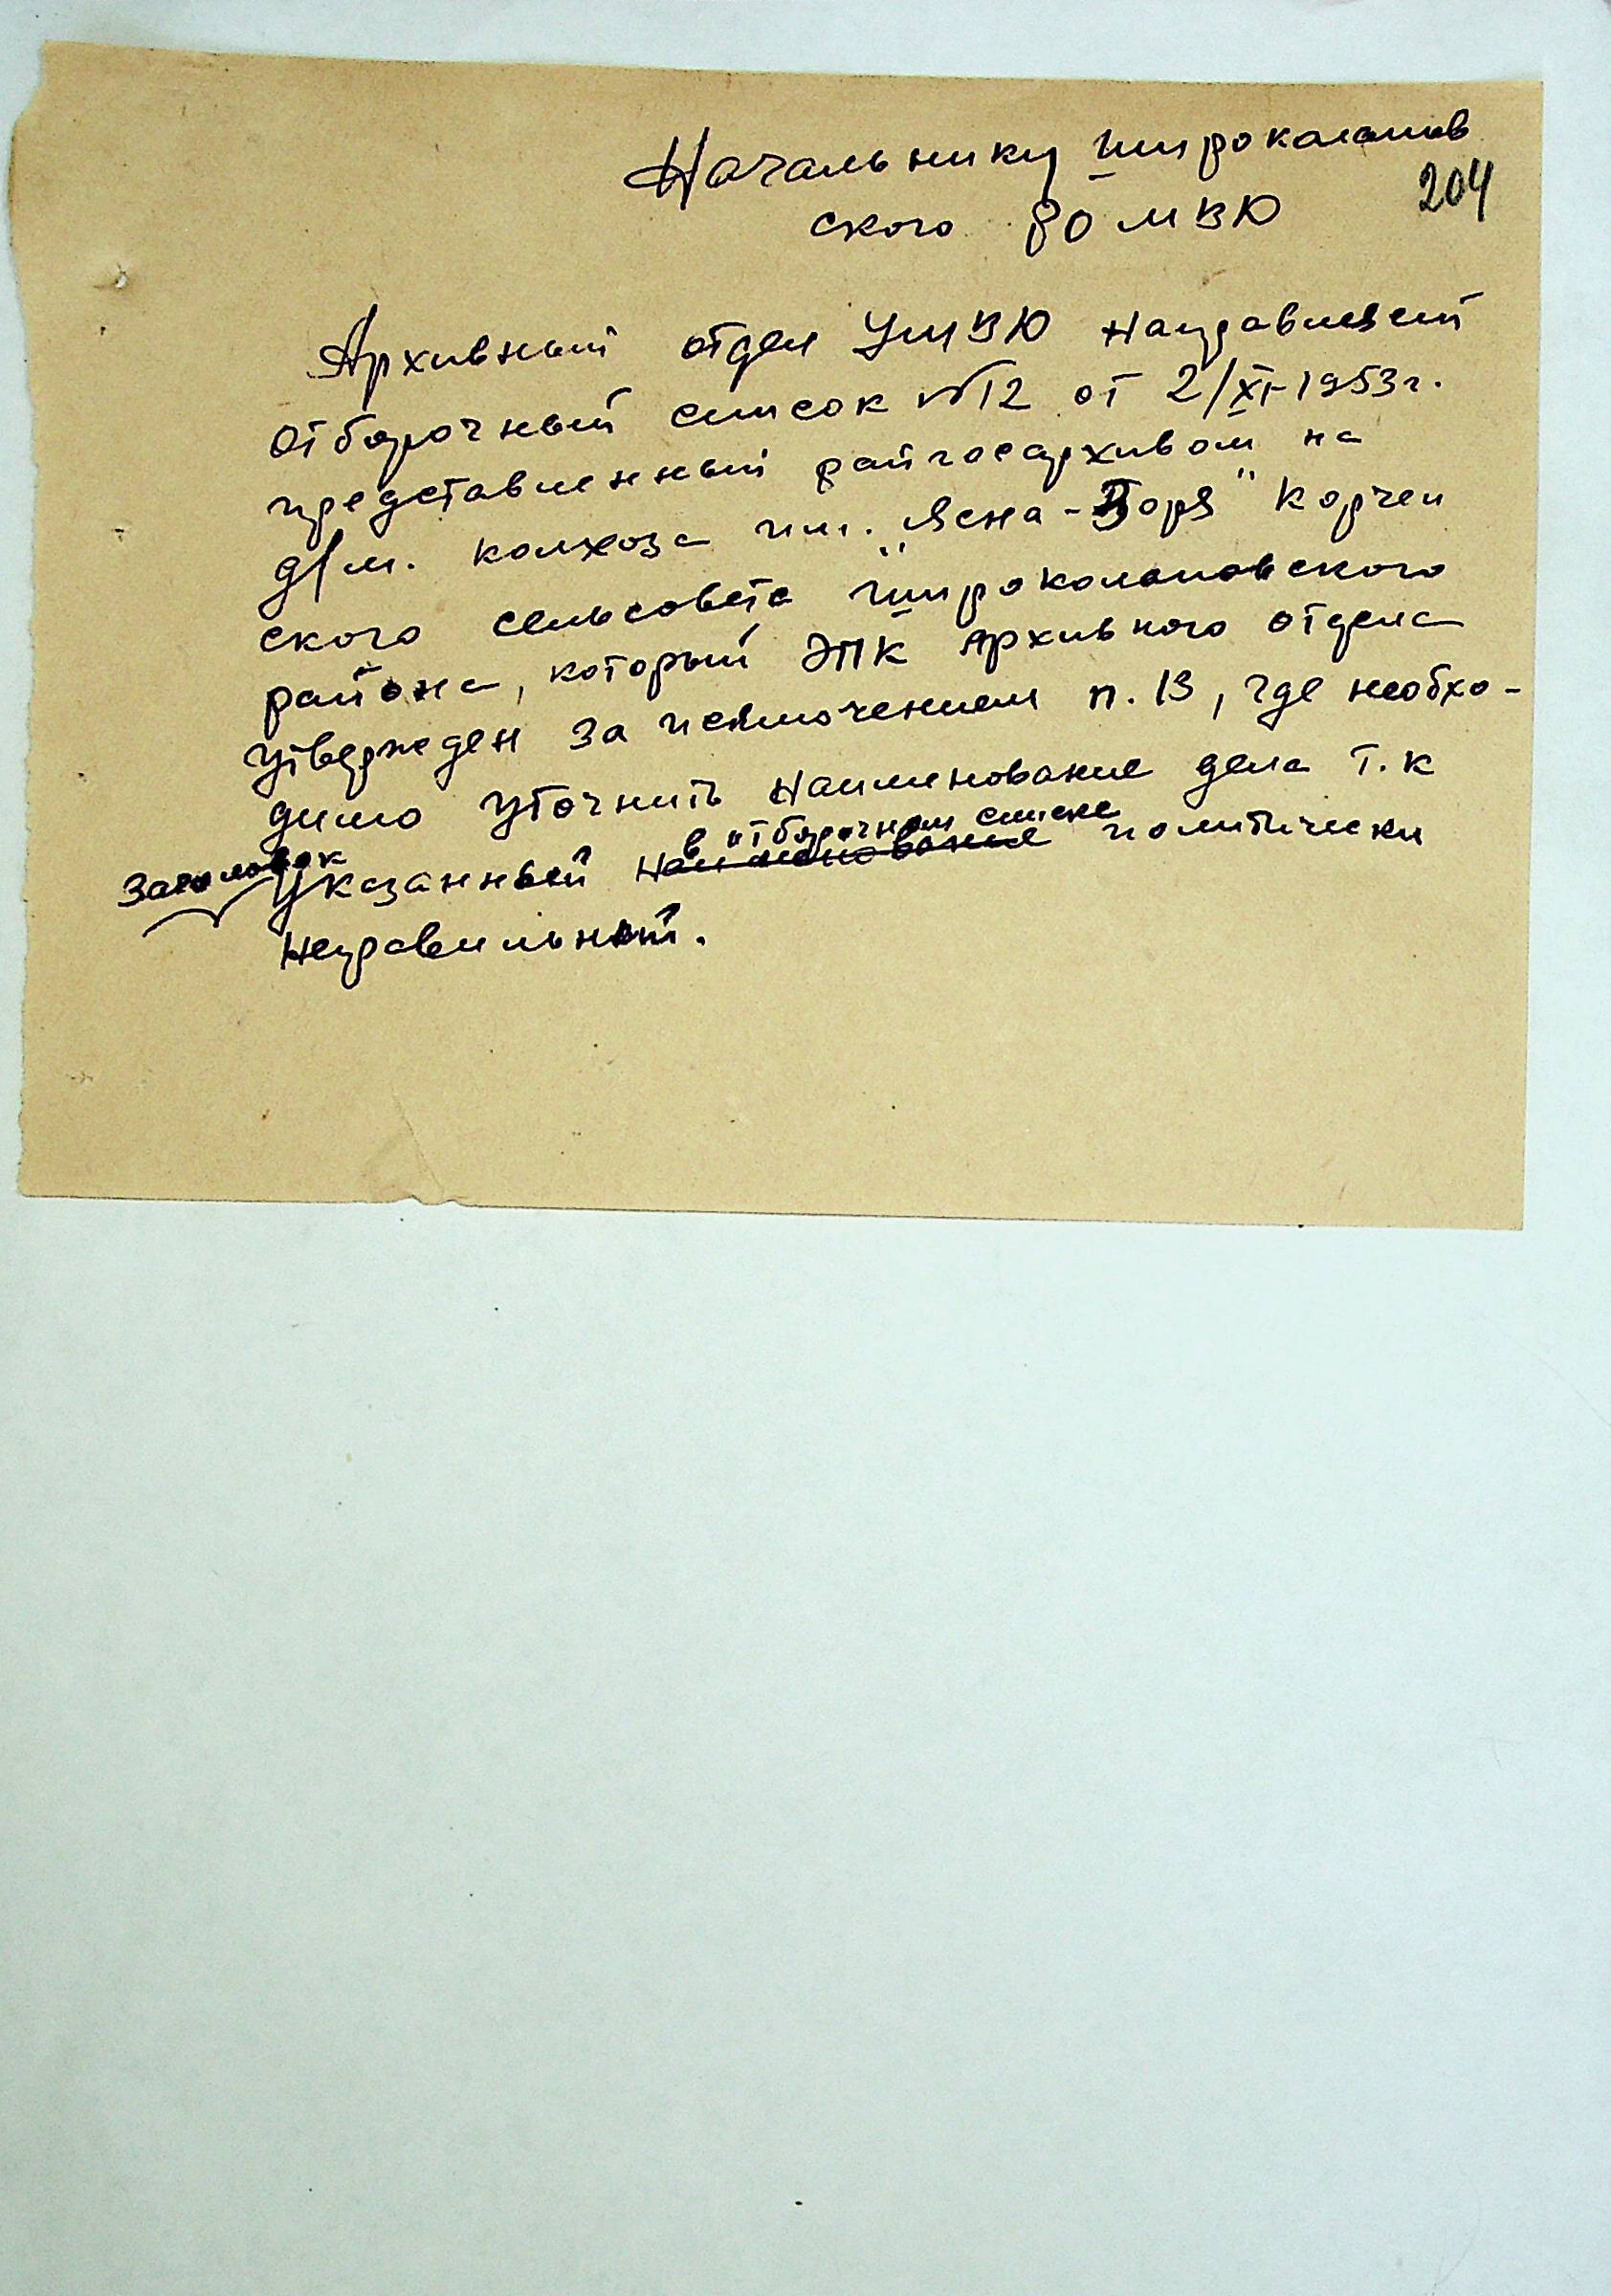 Начальнику Широколанов
204
ского РО МВД
Архивный отдел УМВД направляет
отборочный список №12 от 2/XI-1953г.
представленный райгосархивом на
д/м. колхоза им. „Ясна-Зоря" Корчен
ского сельсовета Широколановского
района, который ЭПК Архивного отдела
утвержден за исключением п. 13, где необхо-
димо уточнить наименование дела т.к
Заголовок указанный в отборочном списке наименование политически
неправильный.